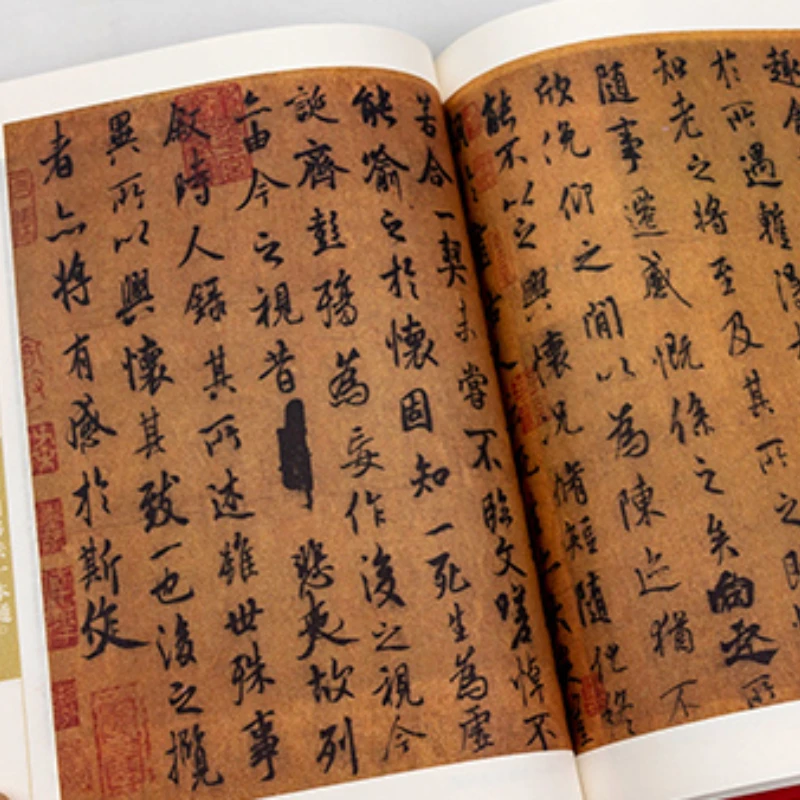 趣舍
於所遇蹔得
知老之將至及其所之既
隨事遷感慨係之矣向之所
欣俛仰之間以為陳迹猶不
能不以之興懷況脩短隨化終
若合一契未嘗不臨文嗟悼不
能喻之於懷固知一死生為虛
誕齊彭殤為妄作後之視今
亦由今之視昔悲夫故列
敘時人錄其所述雖世殊事
異所以興懷其致一也後之攬
者亦將有感於斯文